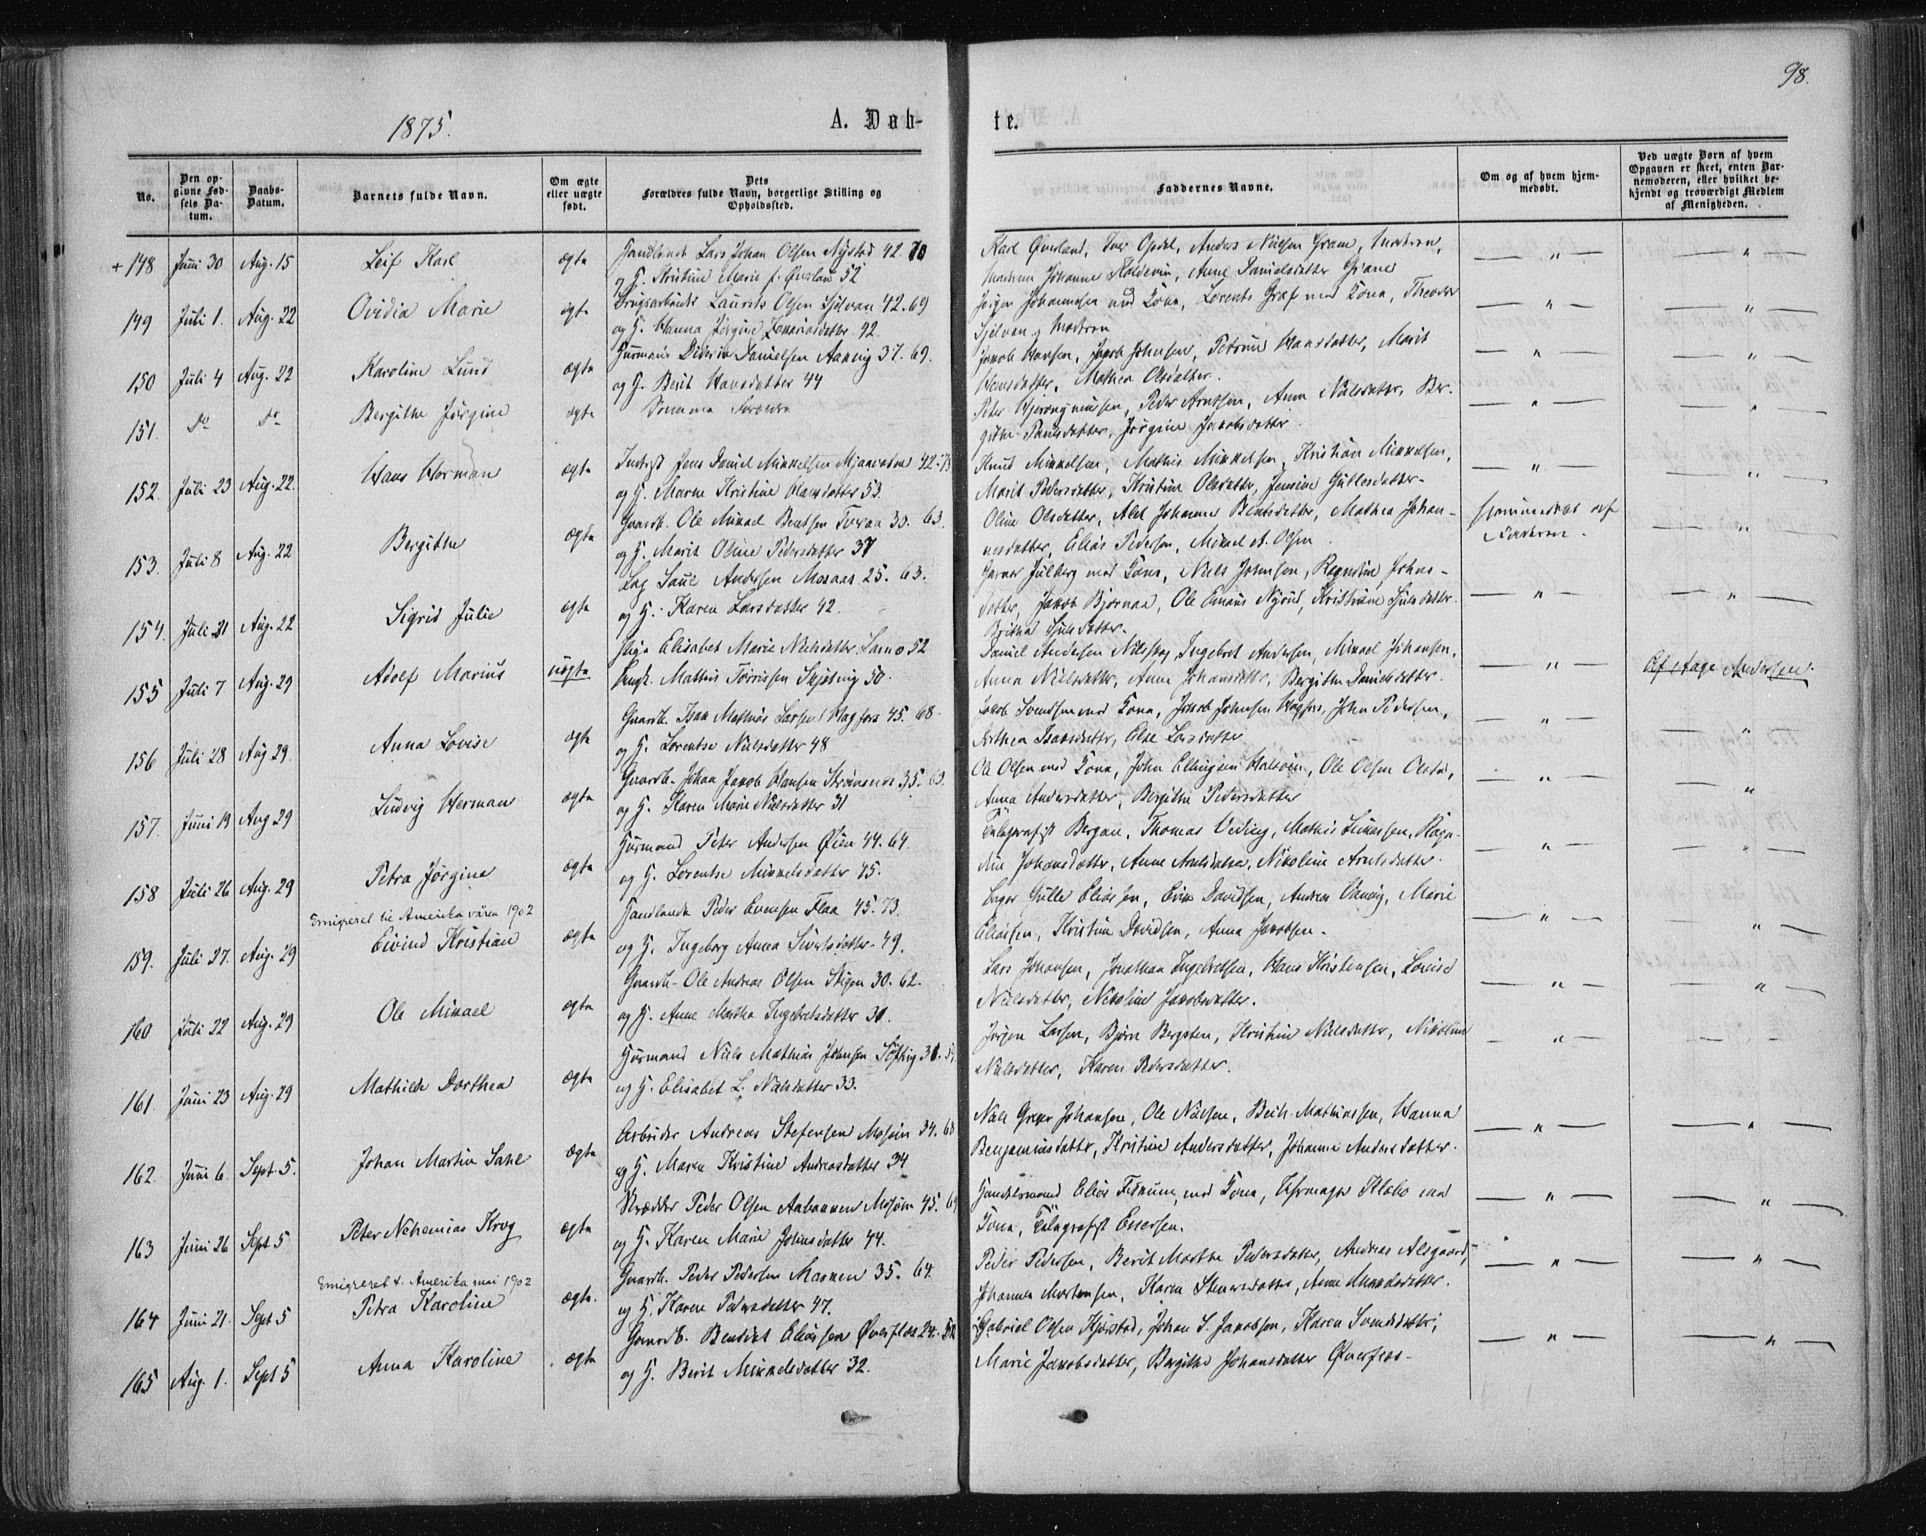 98.
1875.
A. Døb-
te.
No.
Den opgivne Fødsels Datum.
Daabs-Datum.
Barnets fulde Navn.
Om ægte eller uægte født.
Dets Forældres fulde Navn, borgerlige Stilling og Opholdssted.
Faddernes Navne.
Om og af hvem hjemmedøbt.
Ved uægte Børn af hvem Opgaven er skeet, enten Barnemoderen, eller hvilket bekjendt og troværdigt Medlem af Menigheden.
+ 148 Juni 30 Aug. 15 Leif Karl ægte Lars Johan Olsen Nystad 42. 70
og H. Kristine Marie f. Øverland 52
Karl Øverland, Iver Opdal, Anders Nielsen Gram, Madren,
Johanne Koldevin, Anne Danielsdatter Grane
149 Juli 1. Aug. 22 Ovidia Marie ægte Brugsarbeider Laurits Olsen Sjelvan 42. 69
og H. Hanna Jørgine Zakariasdatter 42.
Johannesen med Kona, Lorents Graf med Kona, Theodor
Sjelvan, Madren
150 Juli 4 Aug. 22 Karoline Lund ægte Huusmand Diderik Danielsen Aanvig 37. 69.
og H. Berit Hansdatter 44
Jakob Hansen, Jakob Johnsen, Petrine Hansdatter, Marit
Hansdatter, Mathea Olsdatter.
151. do do Bergithe Jørgine ægte Samme Forældre
Peter Hjeronymussen, Peder Arntsen, Anne Nielsdatter, Bergithe Paulsdatter, Jørgine Jakobsdatter
152. Juli 23 Aug. 22. Hans Herman ægte Jens Daniel Mikkelsen Mjaavatn 42. 78
og H. Maren Kristine Hansdatter 53.
Knud Mikkelsen, Mathis Mikkelsen, Kristian Mikkelsen,
Marit Pedersdatter, Kristine Olsdatter, Jensine Gullesdatter.
153. Juli 8 Aug. 22 Bergithe ægte Gaardb. Ole Mikael Bentsen Forraa 33. 63.
og H. Marit Oline Pedersdatter 37
Oline Olsdatter, Alet Johanna Bentsdatter, Mathea Johannesdatter, Elias Pedersen, Mikael A. Olsen.
Hjemmedøbt af Faderen.
154. Juli 21 Aug. 22 Sigrid Julie ægte Andersen Mosaas 25. 63.
og H. Karen Larsdatter 42.
Garver Julberg med Kona, Niels Johnsen, Ragnilda Johnsdatter, Jakob Bjørnaa, Ole Emaus Nyrud, Kristiane Sjulsdatter.
Britha Sjulsdatter.
155 Juli 7 Aug. 29 Adolf Marius uægte Pige Elisabet Marie Nielsdatter 52
Ungk. Mathis Tørrissen Skjøtnig 50.
Daniel Andersen Nilsskog, Ingebret Andersen, Mikael Johansen,
Anna Nielsdatter, Anne Johansdatter, Bergithe Danielsdatter.
Af Aage Andersen.
156 Juli 28 Aug 29. Anna Lovise ægte Gaardb. Isak Mathias Larsen Hagfors 45. 68.
og H. Lorentse Nielsdatter 48
Jakob Svendsen med Kona, Jakob Johnsen Hagfors, John Pedersen,
Dorthea Isaksdatter, Else Larsdatter.
157. Juni 19 Aug 29 Ludvig Herman ægte Gaardb. Johan Jakob Hansen 35. 63.
og H. Karen Marie Nielsdatter 31
Ole Olsen med Kona, John Ellingsen, Ole Olsen,
Anna Andersdatter, Bergithe Pedersdatter
158 Juli 26 Aug. 29 Petra Jørgina ægte Huusmand Peter Andersen Øien 44. 64.
og H. Lorentse Mikkelsdatter 45.
Telegrafist Bergan, Thomas Veding, Mathis Lukassen, Johansdatter, Anne Arntsdatter, Nikoline Arntsdatter.
Emigreret til Amerika våren 1902
159. Juli 27. Aug. 29 Eivind Kristian ægte Peder Evensen Flaa 45. 73.
og H. Ingeborg Anna Sivertsdatter 49.
Bager Gulle Eliassen, Even Davidsen, Andreas, Marie
Eliassen, Kristine Davidsen, Anna Jakobsen.
160 Juli 22 Aug. 29 Ole Mikael ægte Gaardb. Ole Andreas Olsen 30. 62.
og H. Anne Martha Ingebretsdatter 31.
Lars Johansen, Jonathan Ingebretsen, Hans Kristensen, Lovise
Nielsdatter, Nikoline Jakobsdatter.
161. Juni 23 Aug. 29 Mathilde Dorthea ægte Huusmand Niels Mathias Johnsen 31.
og H. Elisabet L. Nielsdatter 33.
Jørgen Larsen, Bjørn Bergsten, Kristine Nielsdatter, Nikoline
Nielsdatter, Karen Pedersdatter.
162. Juni 6. Sept. 5. Johan Martin Sahl ægte Arbeider Andreas Stefensen Mosjøen 34. 63
og H. Maren Kristine Andreasdatter 34
Niels Johansen, Ole Nielsen, Mathiassen, Hanna
Benjaminsdatter, Kristine Andersdatter, Johanna Andersdatter.
163 Juni 26 Sept 5 Peter Nehemias Krog ægte Skrædder Peder Olsen Aabakken Mosjøen 45. 69
og H. Karen Marie Johnsdatter 44.
Handelsmand Elias Forkum med Kona, Klæbo med
Kona, Telegrafist Enersen.
Emigreret t. Amerika mai 1902
164 Juni 21. Sept 5 Petra Karoline ægte. Gaardb. Peder Pedersen Marken 35. 64.
og H. Karen Pedersdatter 47.
Peder Pedersen, Berit Marthe Pedersdatter, Andreas Alsgaard,
Johannes Mortensen, Karen Steversdatter, Anne Amundsdatter.
165 Aug. 1. Sept 5 Anna Karoline ægte Gaardb. Bendik Eliassen Øverfloa 24. 52
og H. Berit Mikkelsdatter 32.
Gabriel Olsen Kjerstad, Johan S. Jakobsen, Karen Svendsdatter,
Marie Jakobsdatter, Bergithe Johansdatter Øverfloa.